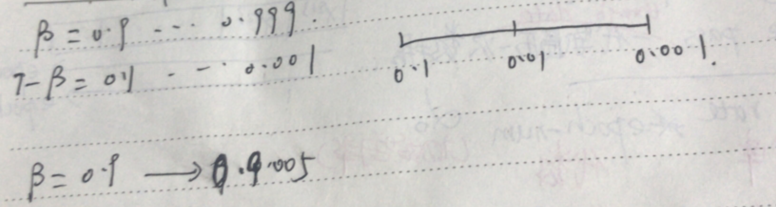 β = 0.9 ... 0.999.
1-β = 0.1 ... 0.001
0.1 0.01 0.001.
β = 0.9 → 0.9005